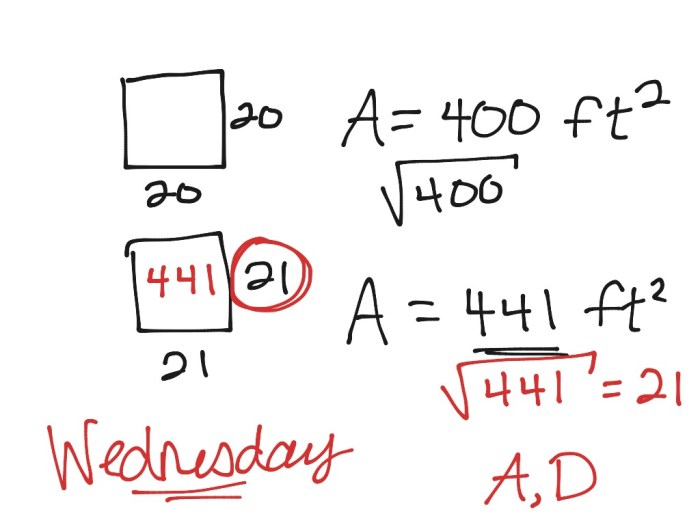 20
A = 400 ft²
20
√400
441
21
A = 441 ft²
21
√441 = 21
Wednesday
A, D